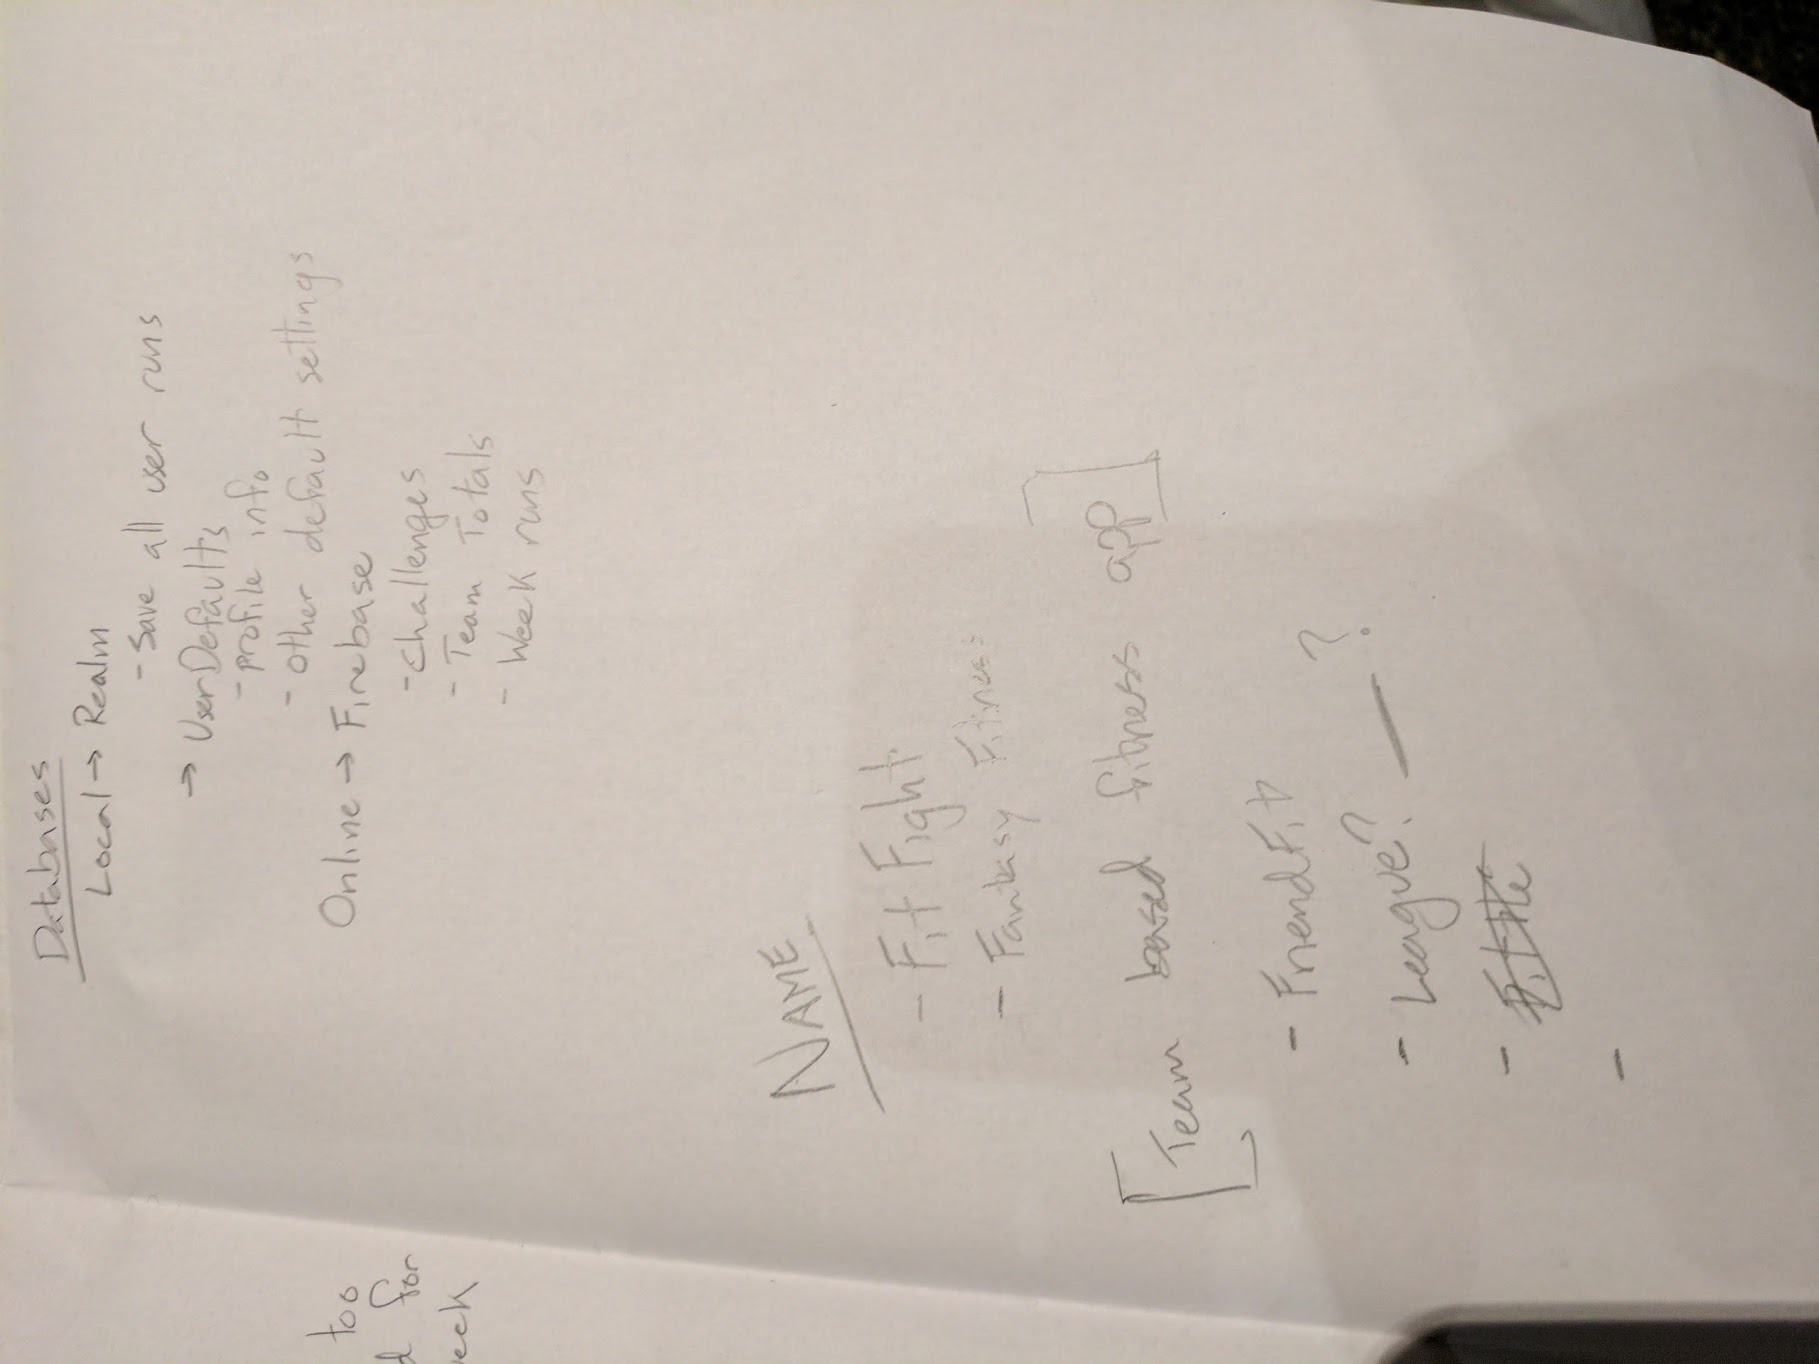 Databases
Local → Realm
- Save all user runs
→ UserDefaults
- profile info
- other default settings
Online → Firebase
- Challenges
- Team Totals
- Week runs
NAME
- Fit Fight
- Fantasy Fitness
[Team based fitness app]
- FriendFit
- League? — ?
-
-
too
for